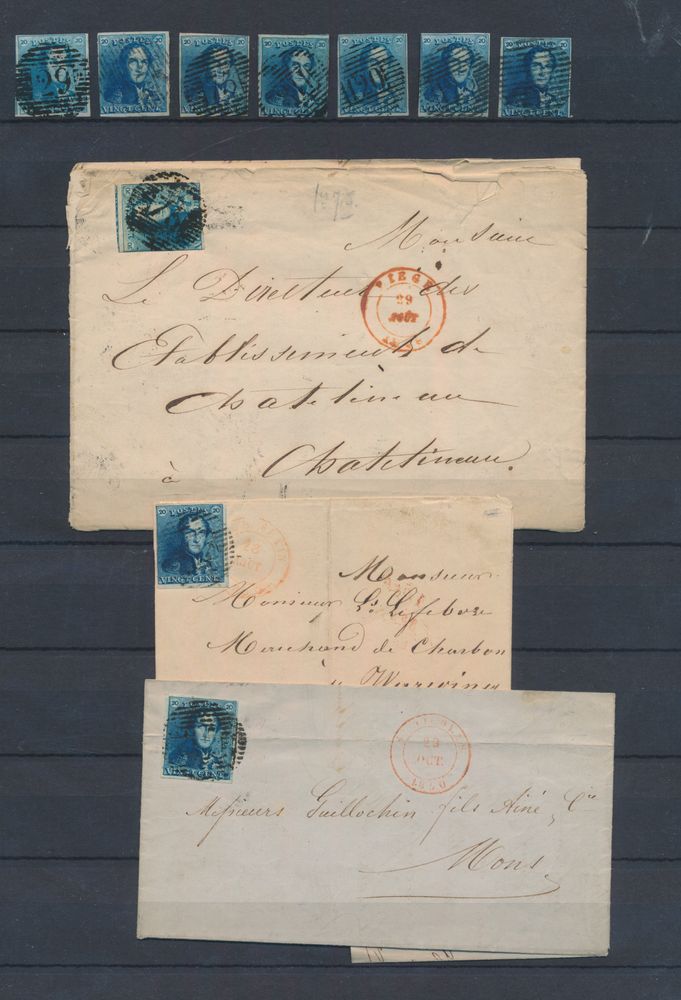 20 POSTES 20
29
20 POSTES 20
VINGT CENT.
20 POSTES 20
VINGT CENT.
20 POSTES 20
VINGT CENT.
20 POSTES 20
120
VINGT CENT.
20 POSTES 20
VINGT CENT.
20 POSTES 20
VINGT CENT.
Monsieur
Le Directeur des
Etablissements de
Chatelineau
à Chatelineau.
29
AOUT
20 POSTES 20
VINGT CENT.
Monsieur
Monsieur Ls Lefebvre
Marchand de Charbon
à
20 POSTES 20
VINGT CENT.
ST NICOLAS
29
OCT.
1850
Messieurs Guillochin fils Ainé & Cie
Mons.